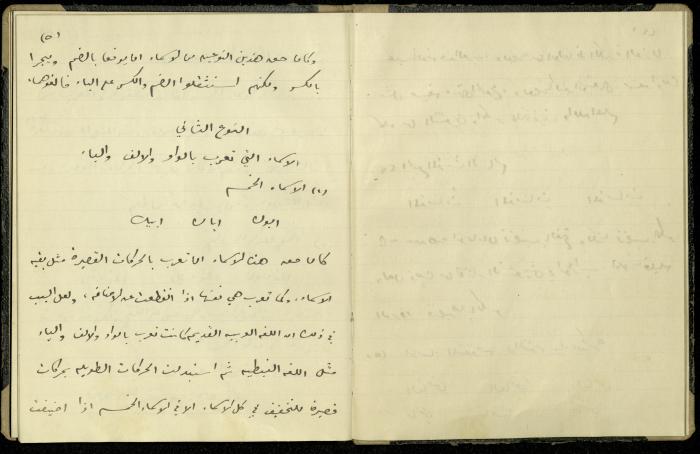 (٥)
وكان حق هذين النوعين من الاسماء اما يرفعا بالضم ويجرا
بالكسر ولكنهم استثقلوا الضم والكسر على الياء فألغوهما
النوع الثاني
الاسماء التي تعرب بالواو والالف والياء
(١) الاسماء الخمسة
ابوك اباك ابيك
كان حق هذه الاسماء ان تعرب بالحركات القصيرة مثل بقية
الاسماء، وكما تعرب هي نفسها اذا انقطعت عن الاضافه، ولعل السبب
في ذلك ان اللغه العربيه القديمه كانت تعرب بالواو والالف والياء
مثل اللغه النبطيه ثم استبدلت الحركات الطويله بحركات
قصيرة للتخفيف في كل الاسماء الا في الاسماء الخمسه اذا اضيفت